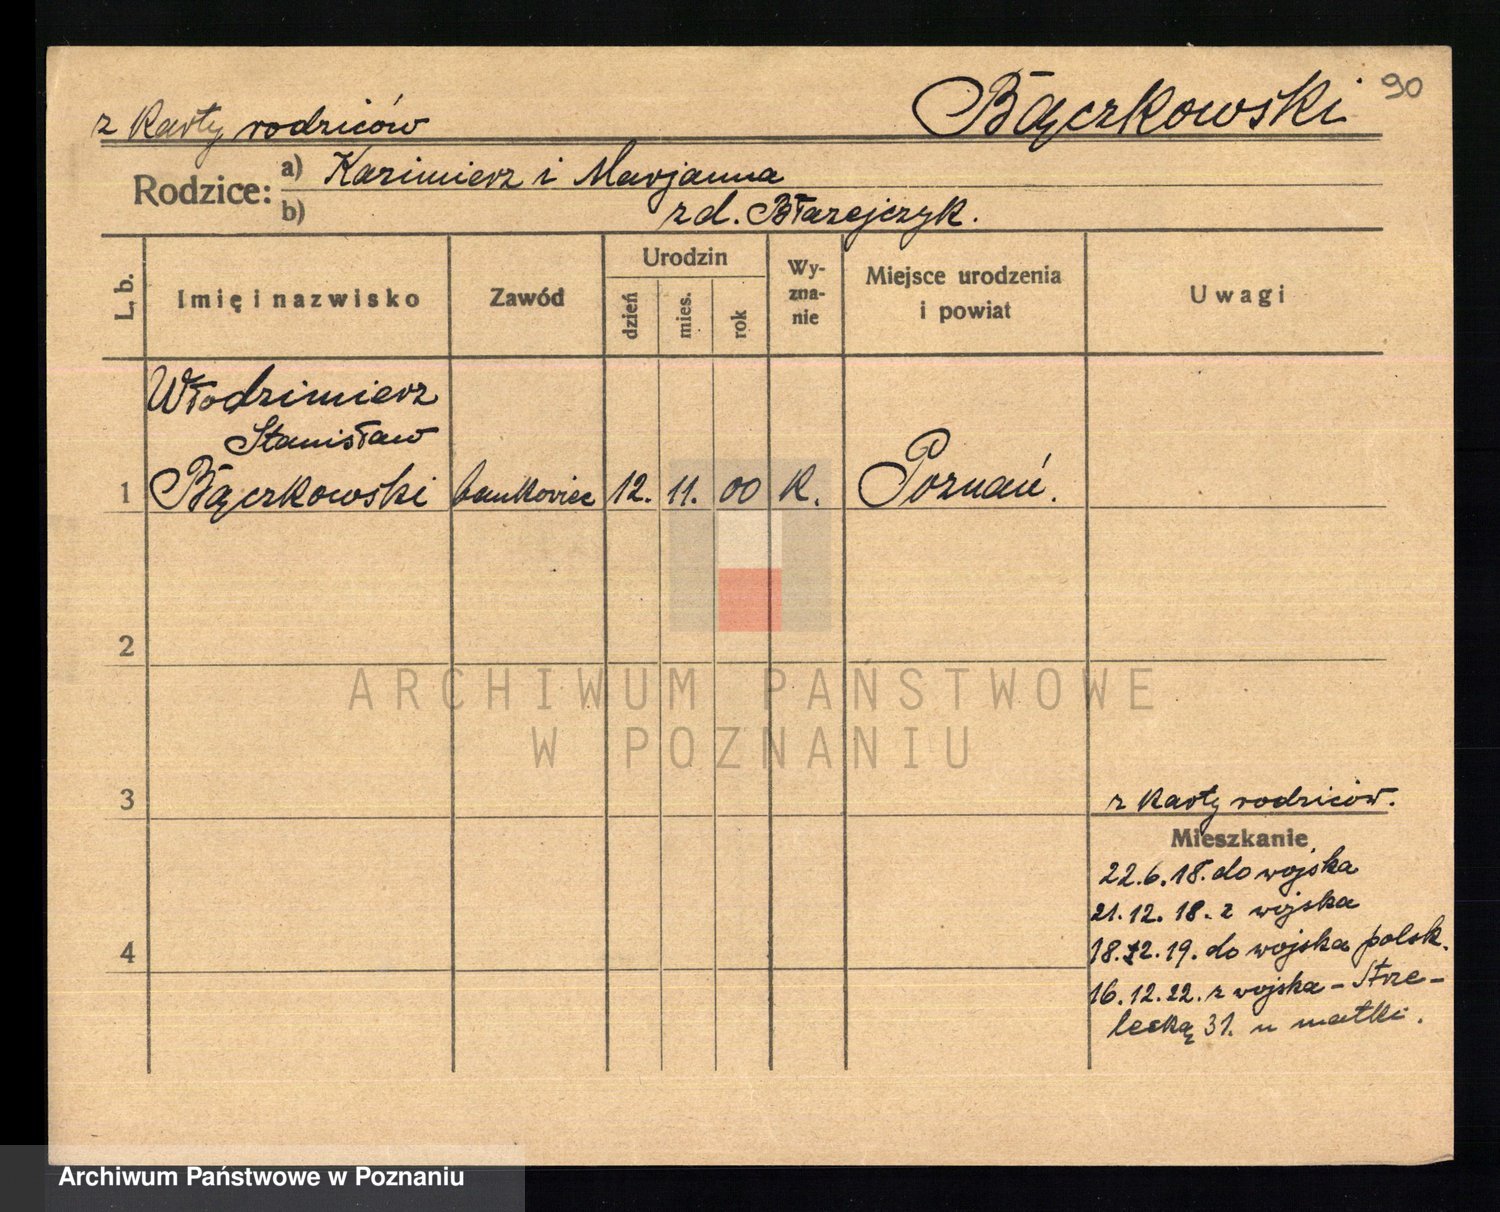 90
z karty rodziców Bączkowski
Rodzice: a) Kazimierz i Marjanna
b) zd. Błazejczyk.
L. b. Imię i nazwisko Zawód Urodzin dzień mies. rok Wy-zna-nie Miejsce urodzenia i powiat Uwagi
Włodzimierz
Stanisław
1 Bączkowski bankowiec 12. 11. 00 k. Poznań.
2
ARCHIWUM PAŃSTWOWE
W POZNANIU
3 z karty rodziców.
Mieszkanie
22.6.18. do wojska
21.12.18. z wojska
4 18.12.19. do wojska polsk.
16.12.22. z wojska – Strze-
lecką 31. u matki.
Archiwum Państwowe w Poznaniu